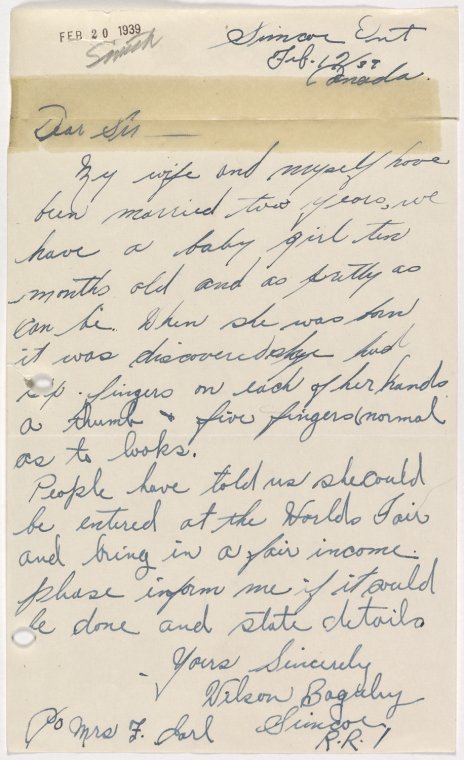 FEB 20 1939
Smith
Simcoe Ont
Feb. 12/39
Canada.
Dear Sir —
My wife and myself have
been married two years, we
have a baby girl ten
months old and as pretty as
can be. When she was born
it was discovered she had
fingers on each of her hands
a thumb & five fingers (normal
as to looks.
People have told us she could
be entered at the Worlds Fair
and bring in a fair income.
please inform me if it could
be done and state details
Yours Sincerely
Wilson
℅ Mrs F. Earl Simcoe,
R.R. 1